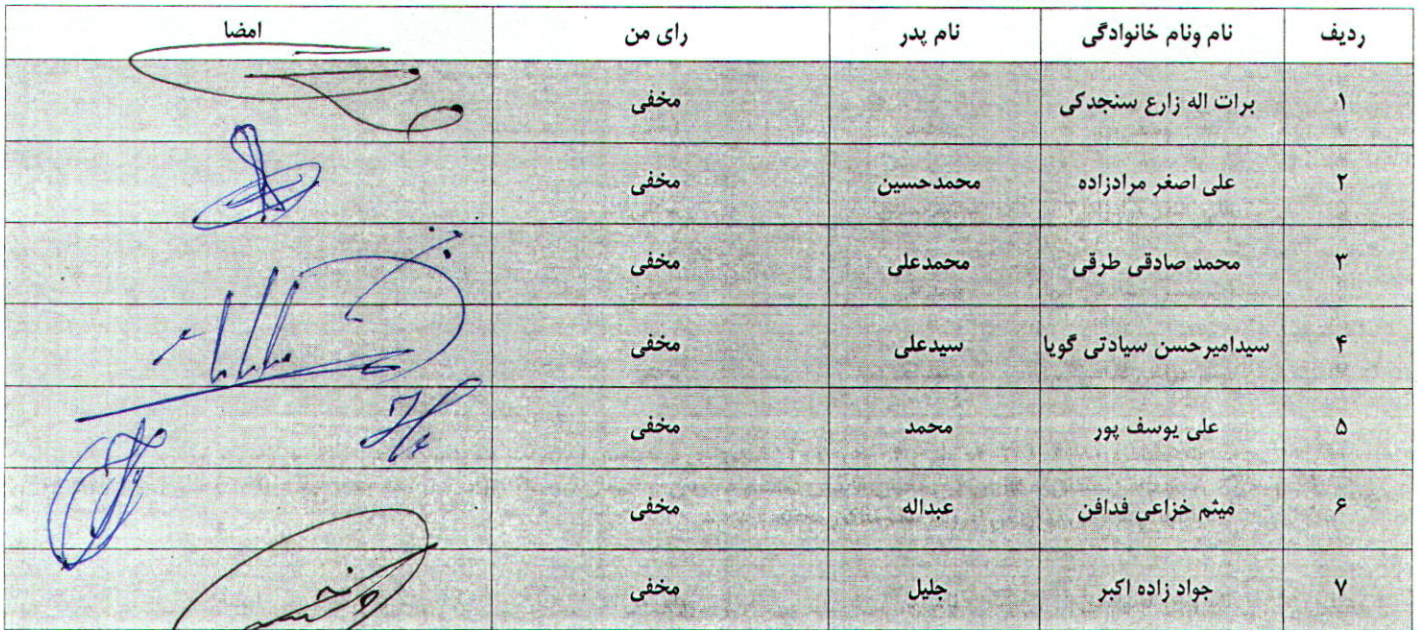 ردیف نام ونام خانوادگی نام پدر رای من امضا
۱ برات اله زارع سنجدکی مخفی
۲ علی اصغر مرادزاده محمدحسین مخفی
۳ محمد صادقی طرقی محمدعلی مخفی
۴ سیدامیرحسن سیادتی گویا سیدعلی مخفی
۵ علی یوسف پور محمد مخفی
۶ میثم خزاعی فدافن عبداله مخفی
۷ جواد زاده اکبر جلیل مخفی